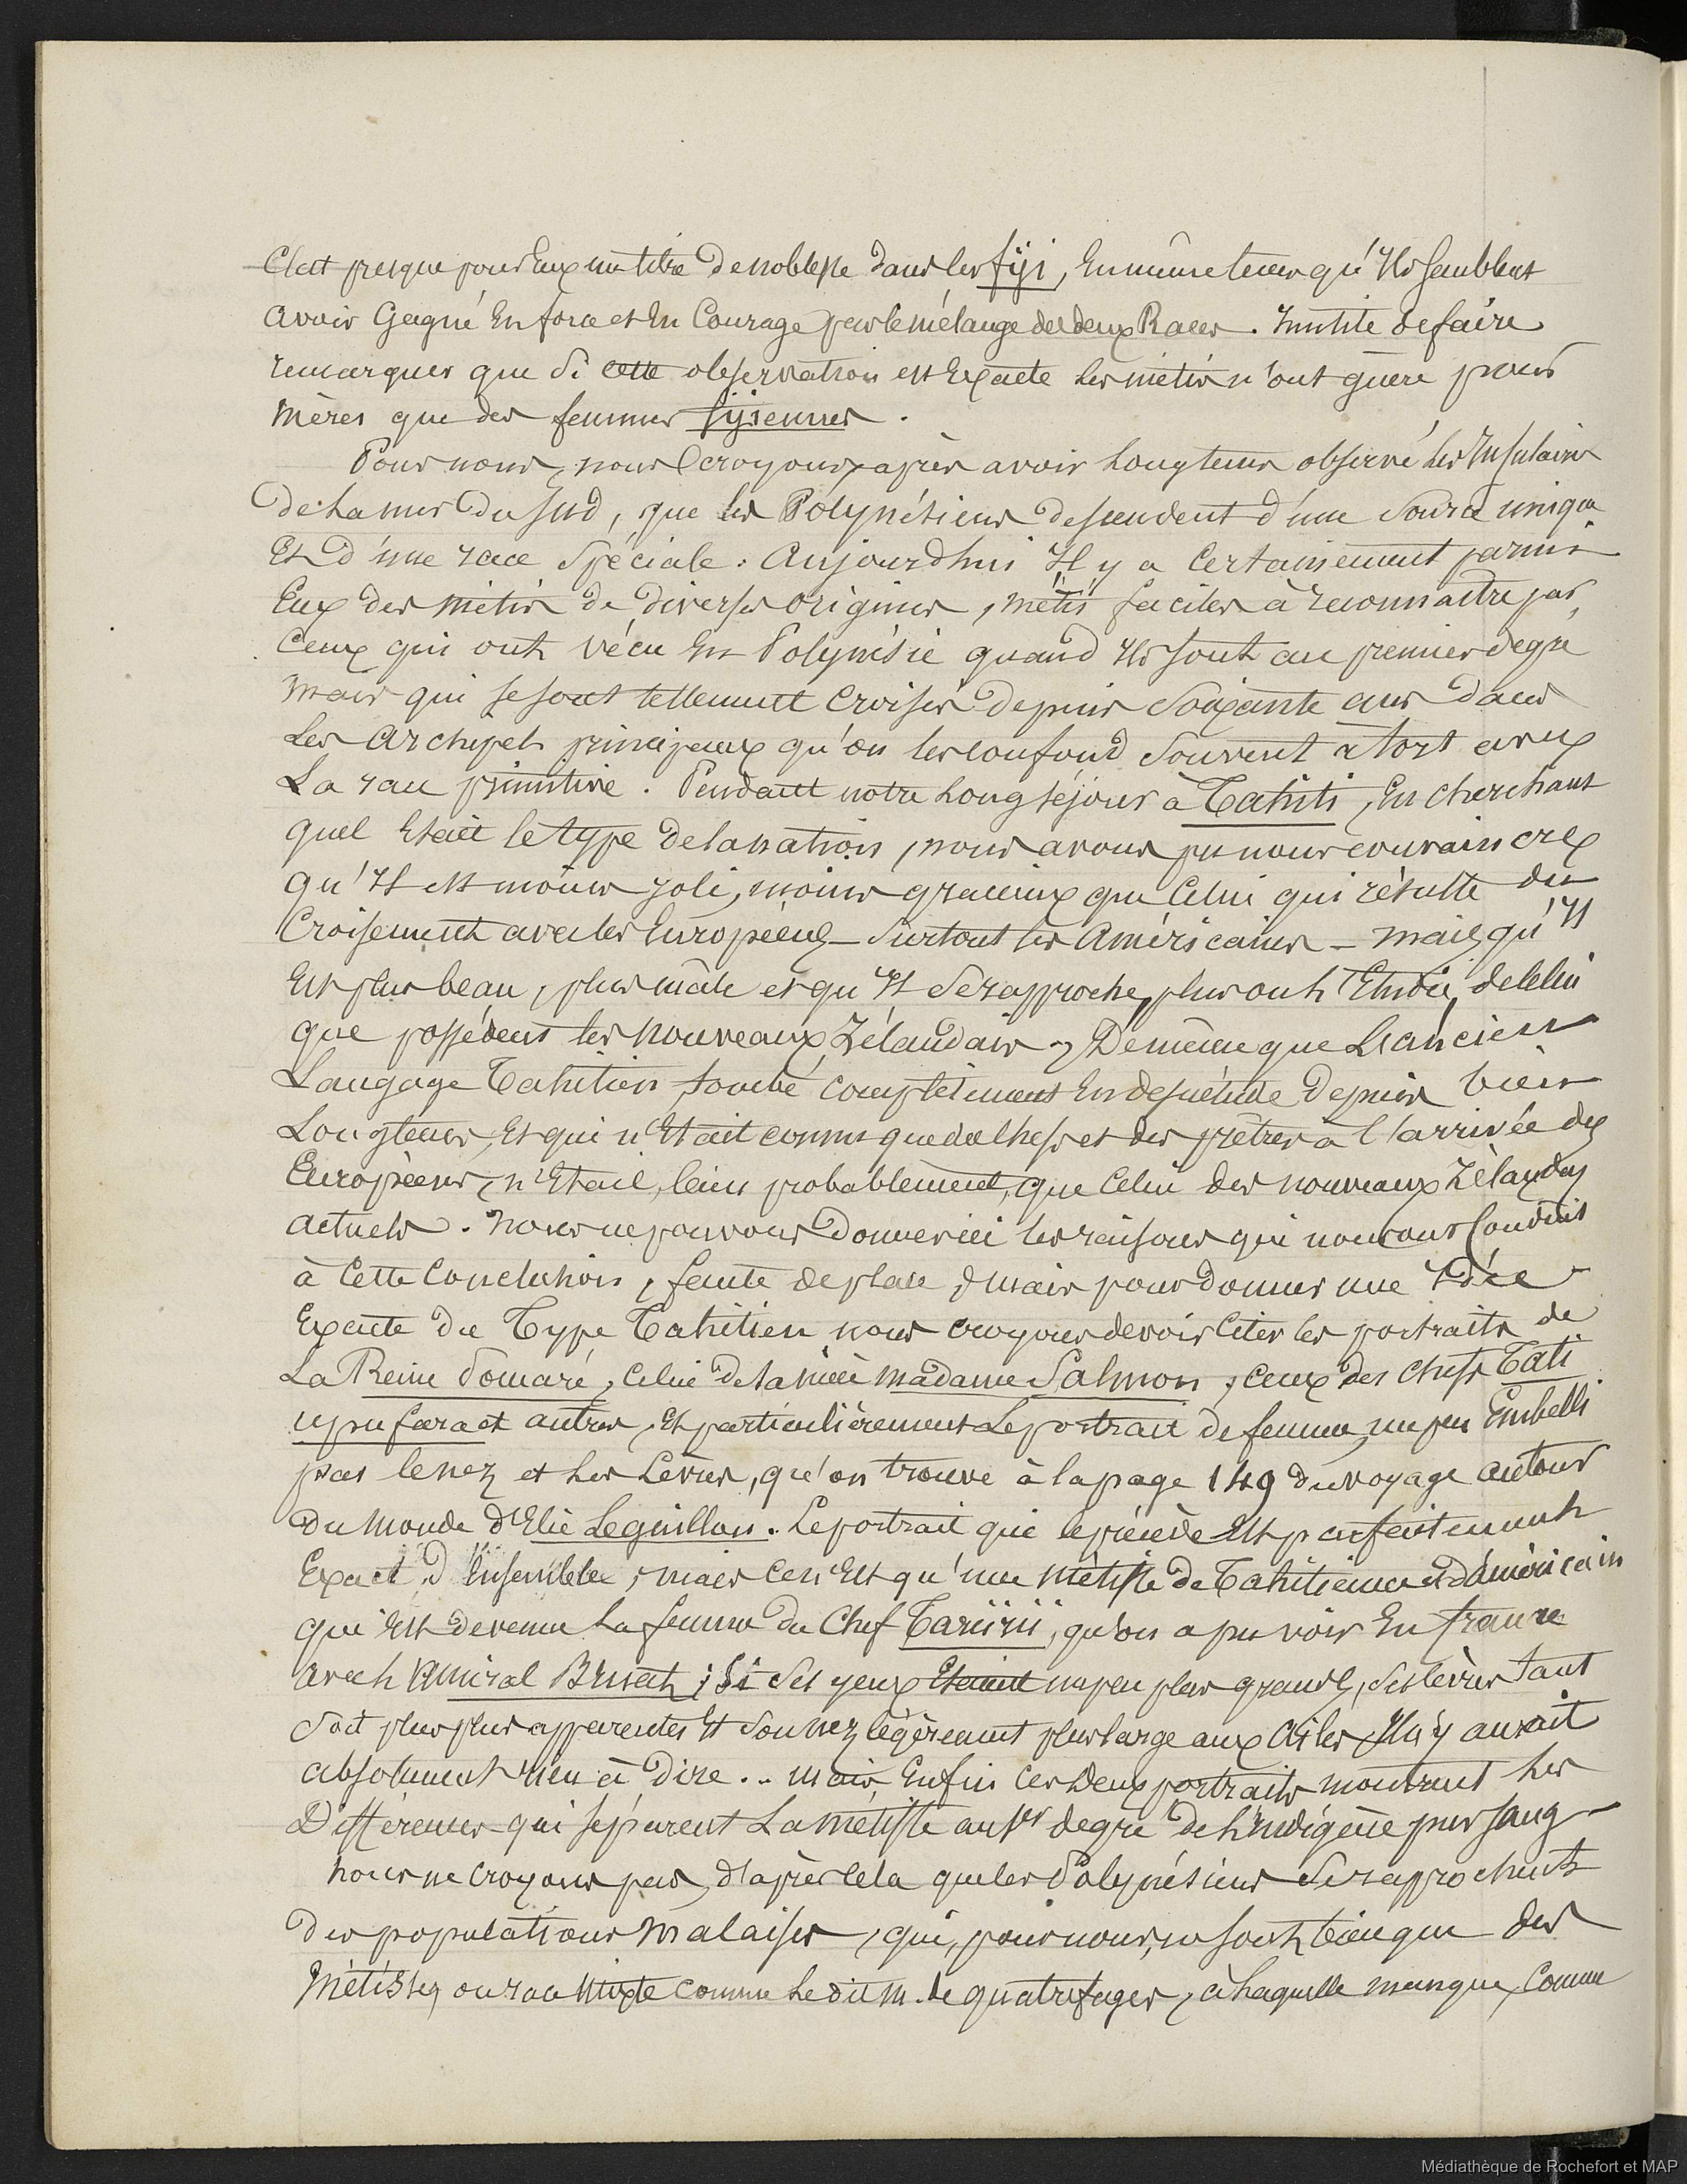 C'est presque pour Eux un titre de noblesse dans les fiji, En même tems qu'Ils semblent
avoir Gagné En force et En Courage par le mélange des deux Races. Inutile de faire
remarquer que Si cette observation est Exacte les métis n'ont guère pour
mères que des femmes fijiennes.
Pour nous, nous croyons, après avoir longtems observé les Insulaires
de la mer du sud, que les Polynésiens descendent d'une Source unique
Et d'une race Spéciale. Aujourdhui Il y a Certainement parmi
Eux des métis de diverses origines, métis faciles à reconnaitre par
Ceux qui ont vécu En Polynésie quand Ils sont au premier degré
mais qui se sont tellement Croisés depuis Soixante ans dans
Les Archipels principaux qu'on les confond Souvent à tort avec
La race primitive. Pendant notre long séjour à Tahiti, En cherchant
quel Etait le type de la nation, nous avons pu nous convaincre
qu'Il est moins joli, moins gracieux que Celui qui résulte du
Croisement avec les Européens – Surtout les Américains – mais qu'Il
Est plus beau, plus mâle et qu'Il Se rapproche, plus on l'Etudie, de celui
que possèdent les nouveaux Zélandais. De même que L'ancien
Langage Tahitien tombé complètement En désuétude depuis bien
Longtems, Et qui n'Etait connu que des chefs et des prêtres à l'arrivée des
Européens, n'Etait, bien probablement, que Celui des nouveaux Zélandais
actuels. Nous ne pouvons donner ici les raisons qui nous ont Conduit
à Cette Conclusion, faute de place, mais pour donner une Idée
Exacte du Type Tahitien nous croyons devoir Citer les portraits de
La Reine Pomaré, Celui de la nièce madame Salmon, Ceux des Chefs Tati
upufara et autres, Et particulièrement Le portrait de femme, un peu Embelli
par le nez et Les Lèvres, qu'on trouve à la page 149 du voyage autour
du Monde d'Elie Leguillou. Le portrait qui le précède Est parfaitement
Exact d'Ensemble, mais Ce n'Est qu'une métisse de Tahitienne et d'américain
qui Est devenue La femme du Chef Tariirii, qu'on a pu voir En france
avec L'Amiral Bruat; Si Ses yeux Etaient un peu plus grands, Ses lèvres tant
Soit plus plus apparentes Et Son nez légèrement plus large aux Ailes Il n'y aurait
absolument rien à dire.. mais Enfin Ces deux portraits montrent Les
Différences qui séparent La métisse au 1er degré de L'Indigène pur sang –
Nous ne croyons pas, d'après Cela que les Polynésiens Se rapprochent
des populations Malaises, qui, pour nous, ne sont bien que des
Métisses ou race Mixte comme Le dit M. de quatrefages, à Laquelle manque, Comme
Médiathèque de Rochefort et MAP